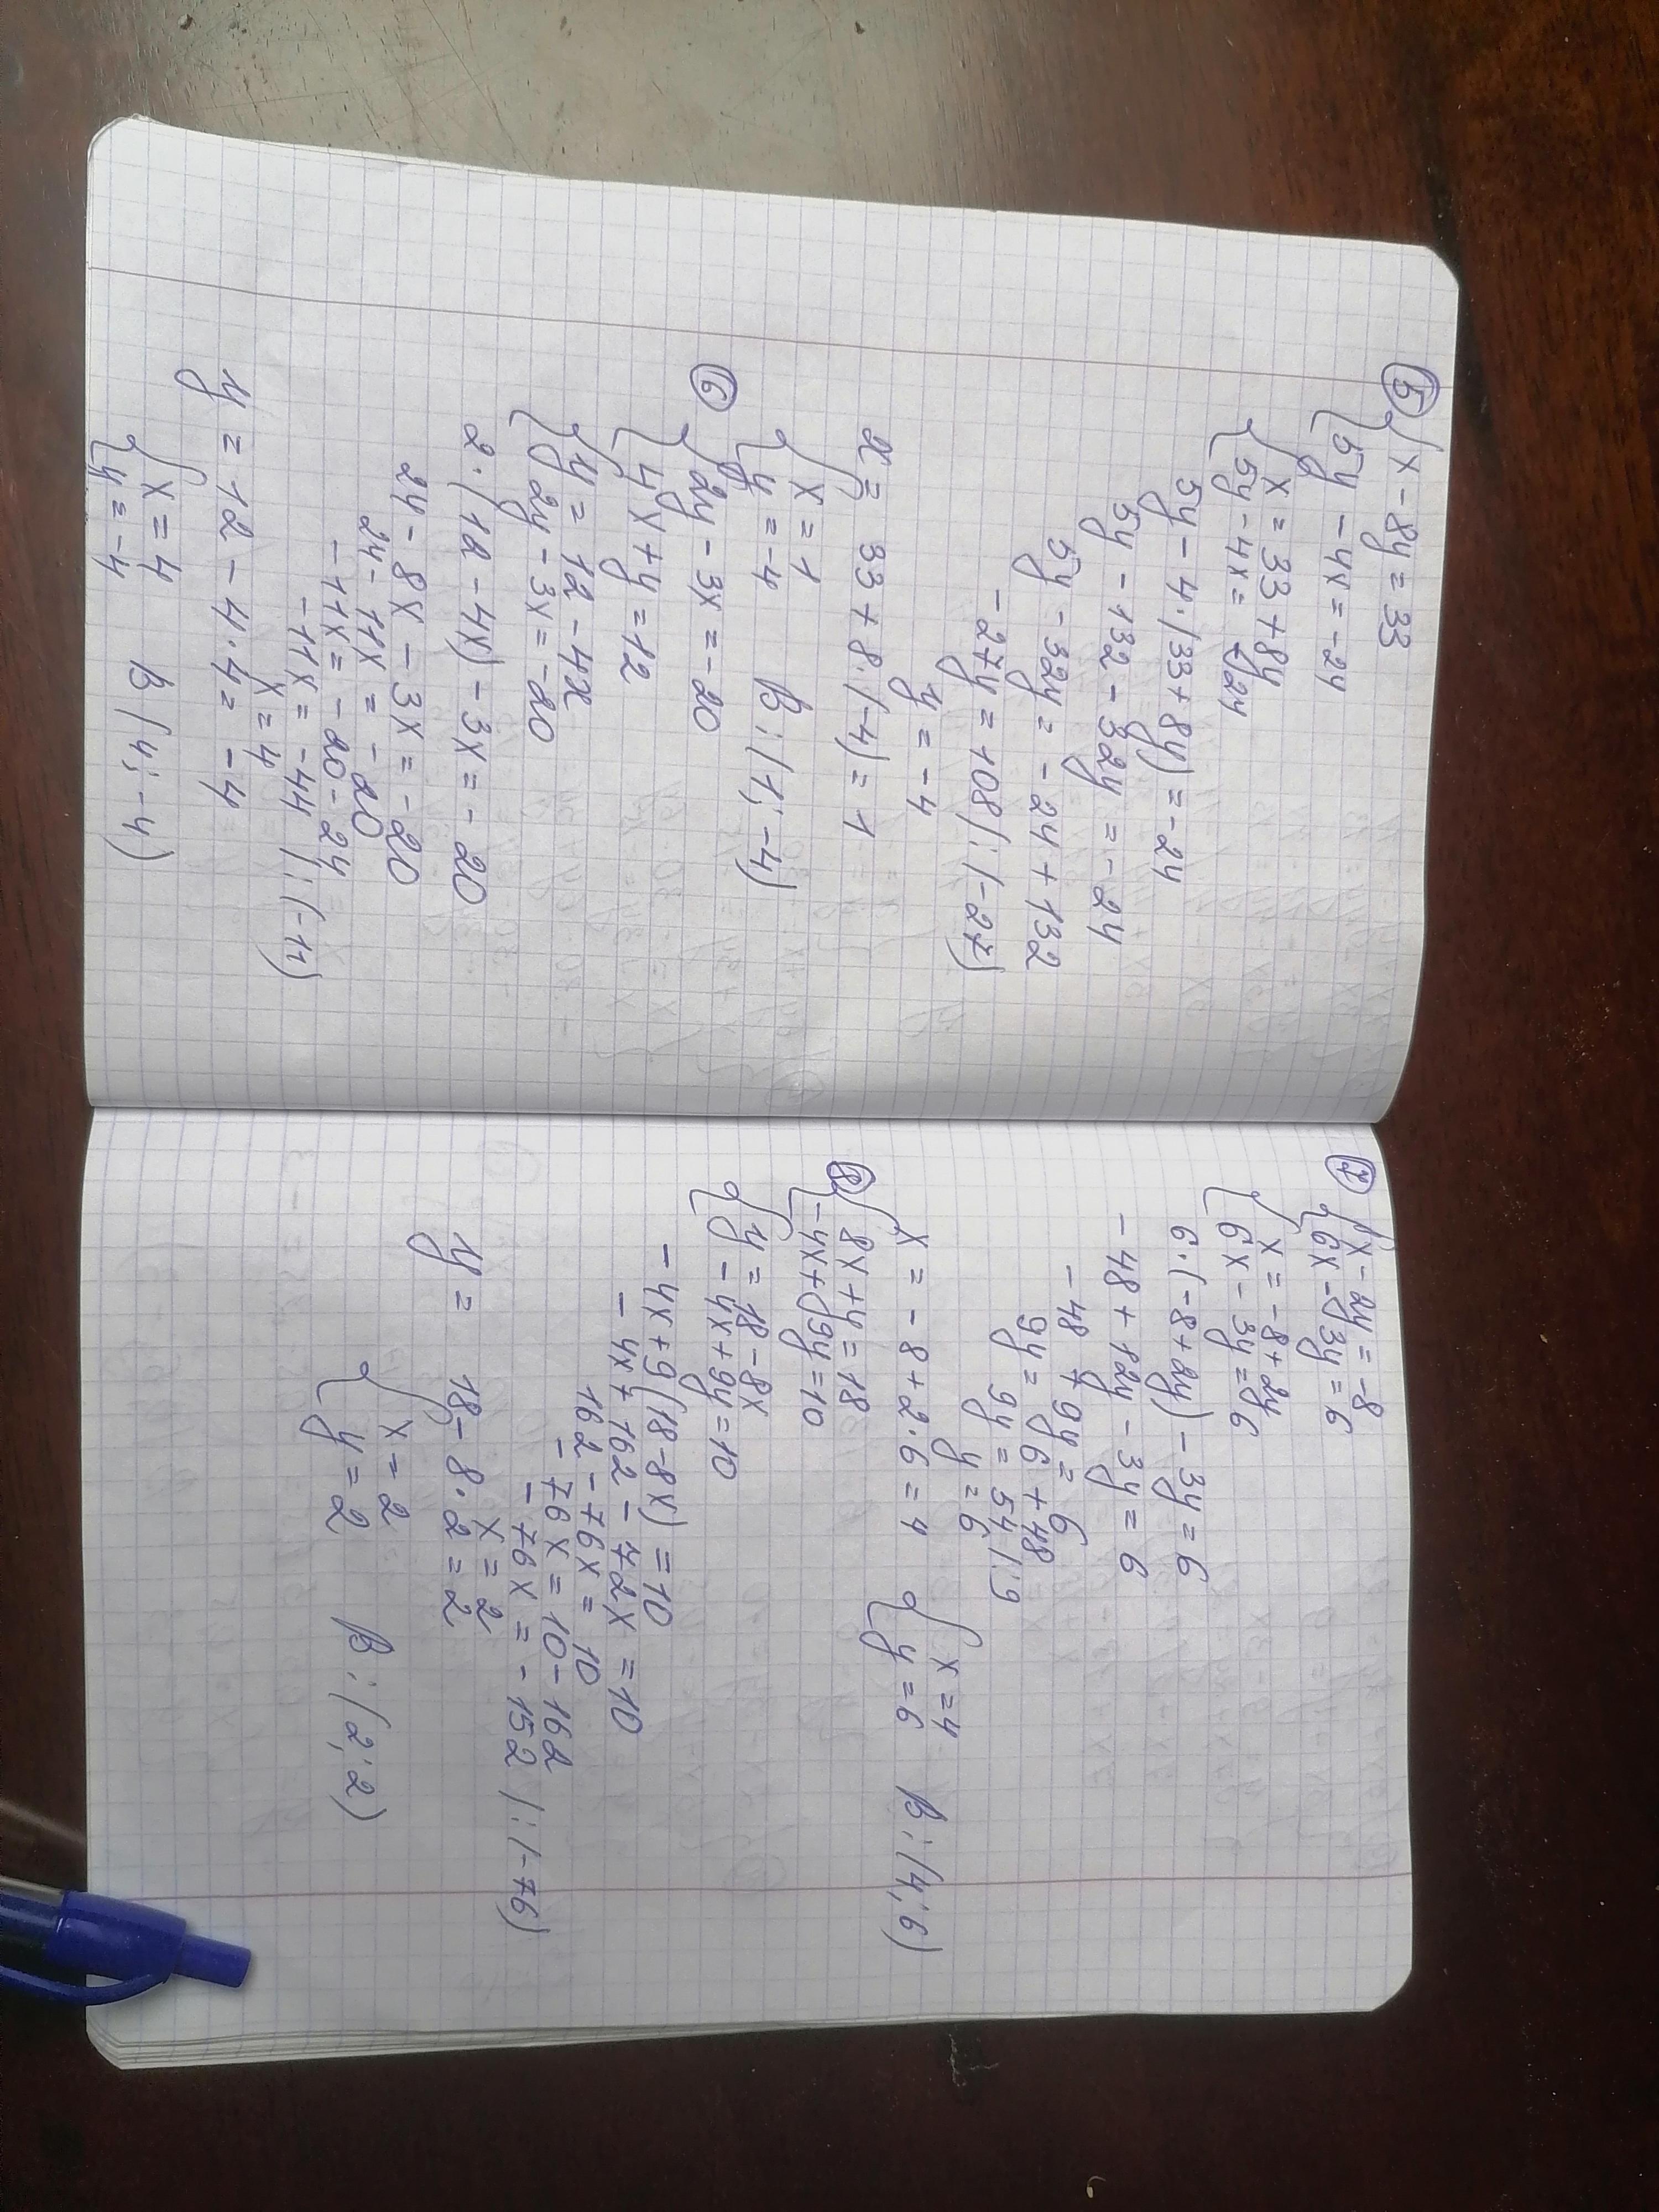 5 { x - 8y = 33
5y - 4x = -24
{ x = 33 + 8y
5y - 4x = -24
5y - 4·(33 + 8y) = -24
5y - 132 - 32y = -24
5y - 32y = -24 + 132
-27y = 108 |:(-27)
y = -4
x = 33 + 8·(-4) = 1
{ x = 1
y = -4 В:(1; -4)
6 { 2y - 3x = -20
4x + y = 12
{ y = 12 - 4x
2y - 3x = -20
2·(12 - 4x) - 3x = -20
24 - 8x - 3x = -20
24 - 11x = -20
-11x = -20 - 24
-11x = -44 |:(-11)
x = 4
y = 12 - 4·4 = -4
{ x = 4
y = -4 В(4; -4)
7 { x - 2y = -8
6x - 3y = 6
{ x = -8 + 2y
6x - 3y = 6
6·(-8 + 2y) - 3y = 6
-48 + 12y - 3y = 6
-48 + 9y = 6
9y = 6 + 48
9y = 54 |:9
y = 6
x = -8 + 2·6 = 4 { x = 4
y = 6 В:(4; 6)
8 { 8x + y = 18
-4x + 9y = 10
{ y = 18 - 8x
-4x + 9y = 10
-4x + 9(18 - 8x) = 10
-4x + 162 - 72x = 10
162 - 76x = 10
-76x = 10 - 162
-76x = -152 |:(-76)
x = 2
y = 18 - 8·2 = 2
{ x = 2
y = 2 В:(2; 2)